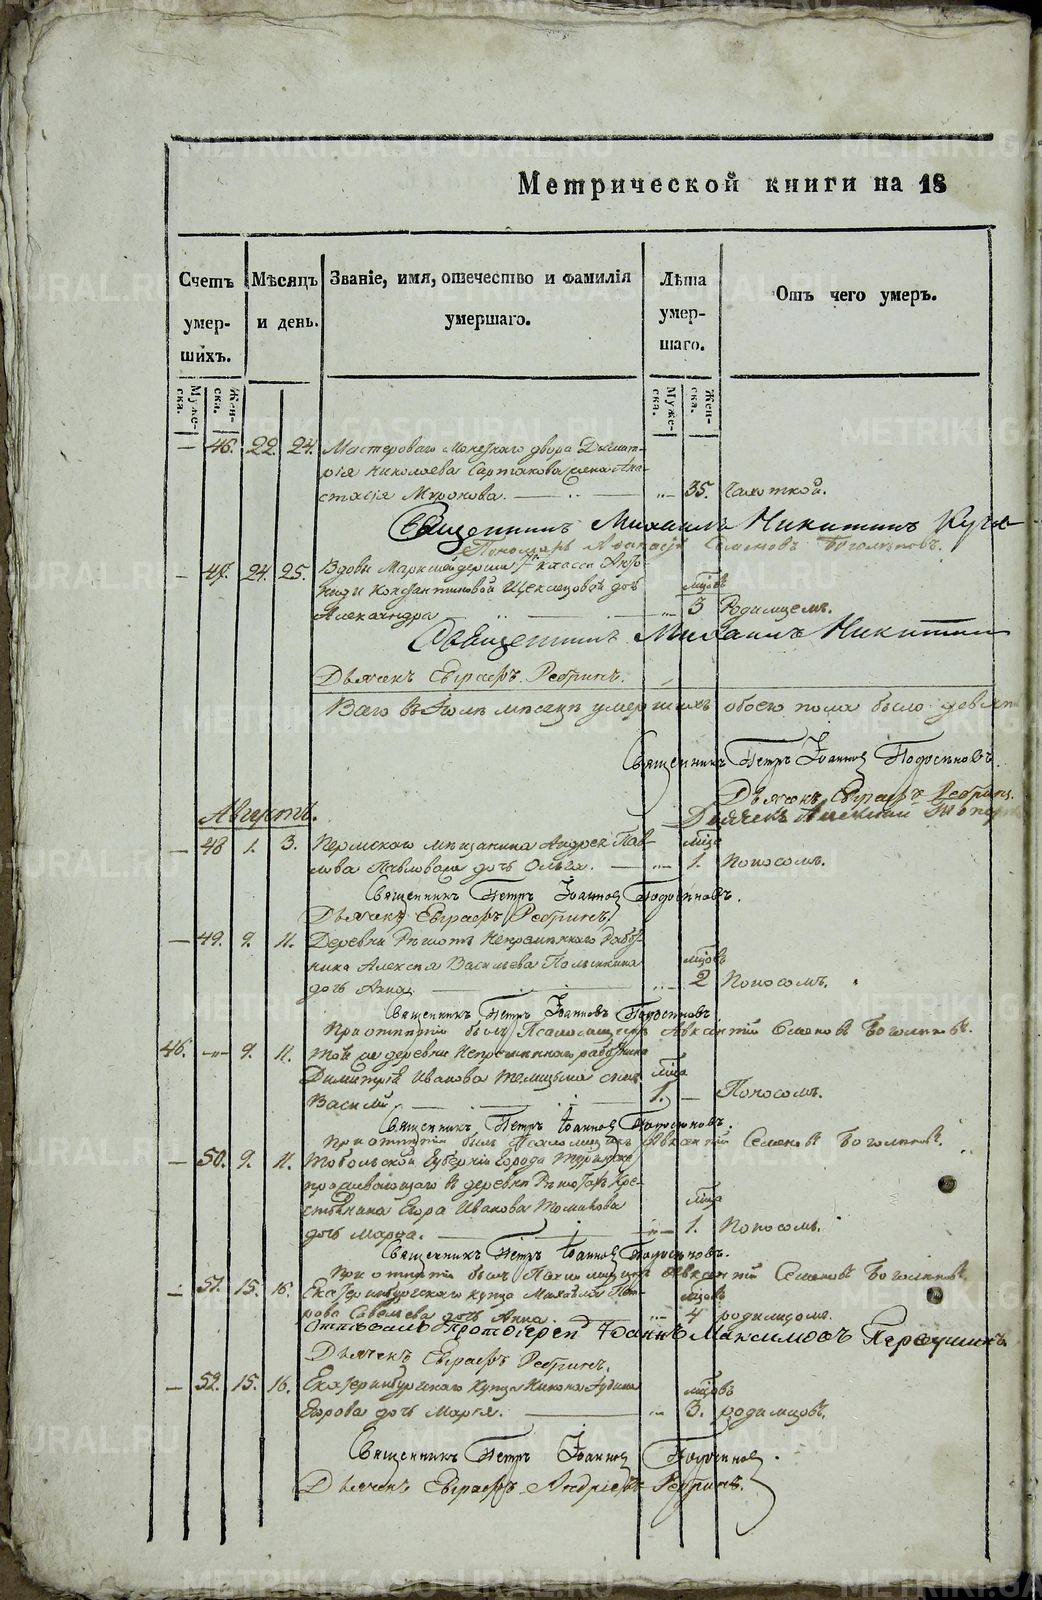 Метрической книги на 18
Счетъ умер-шихъ.
Мѣсяцъ и день.
Званіе, имя, отечество и фамилія умершаго.
Лѣта умер-шаго.
Отъ чего умеръ.
Муже-ска.
Жен-ска.
Муже-ска.
Жен-ска.
— 46. 22. 24. Мастероваго Монетнаго двора Димит-
рія Николаева Сартакова жена Ана-
стасія Миронова. 35. Чахоткой.
Священникъ Михаилъ Никитинъ
Пономарь Семеновъ Боголѣповъ.
— 47. 24. 25. Вдовы класса
Константиновой дочь мѣсяцовъ
Александра 3 Родимцемъ.
Священникъ Михаилъ Никитинъ
Дьячекъ Евграфъ Ребринъ.
Всего въ Іюлѣ мѣсяцѣ умершихъ обоего пола было девять
Священникъ Петръ Іоанновъ Подосеновъ.
Дьячекъ Евграфъ Ребринъ.
Дьячекъ
Августъ.
— 48 1. 3. Пермскаго мѣщанина Андрея Пав-
лова Павловаго дочь Ольга. мѣсяца 1. Поносомъ.
Священникъ Петръ Іоанновъ Подосеновъ.
Дьячекъ Евграфъ Ребринъ.
— 49. 9. 11. Деревни Рѣшотъ Непремѣннаго работ-
ника Алексѣя Васильева мѣсяцовъ
дочь Анна. 2 Поносомъ.
Священникъ Петръ Іоанновъ Подосеновъ
При отпѣтіи былъ Псаломщикъ Авксентій Семеновъ Боголѣповъ.
46. — 9. 11. Той же деревни Непремѣннаго работника
Димитрія Иванова сынъ мѣсяца
Василій. 1. — Поносомъ.
Священникъ Петръ Іоанновъ Подосеновъ.
При отпѣтіи былъ Псаломщикъ Авксентій Семеновъ Боголѣповъ.
— 50. 9. 11. Тобольской Губерніи города Туринска
проживающаго въ деревнѣ Рѣшотахъ кре-
стьянина Егора Иванова мѣсяца
дочь Марѳа. 1. Поносомъ.
Священникъ Петръ Іоанновъ Подосеновъ.
При отпѣтіи былъ Псаломщикъ Авксентій Семеновъ Боголѣповъ.
— 51. 15. 16. Екатеринбургскаго купца Михаила Пет-
рова Савельева дочь Анна. мѣсяцовъ 4 родимцомъ.
Отпѣвалъ Протоіерей Іоаннъ Максимовъ Первушинъ
Дьячекъ Евграфъ Ребринъ.
— 52. 15. 16. Екатеринбургскаго Купца
Егорова дочь Марія. мѣсяцовъ 3. родимцовъ.
Священникъ Петръ Іоанновъ Подосеновъ.
Дьячекъ Евграфъ Андріевъ Ребринъ.
METRIKI.GASO-URAL.RU